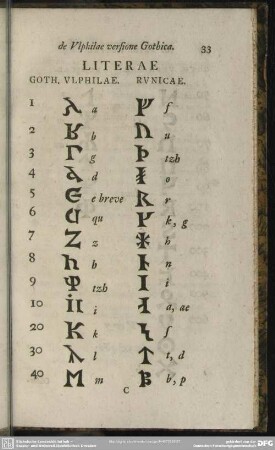 de Vlphilae verſione Gothica. 33
LITERAE
GOTH. VLPHILAE. RVNICAE.
1 𐌰 a ᚠ f
2 𐌱 b ᚢ u
3 𐌲 g ᚦ tzh
4 𐌳 d o
5 𐌴 e breve ᚱ r
6 𐌵 qu k, g
7 𐌶 z h
8 𐌷 h n
9 𐌸 tzh i
10 i a, ae
20 𐌺 k ſ
30 𐌻 l ᛏ t, d
40 𐌼 m ᛒ b, p
C